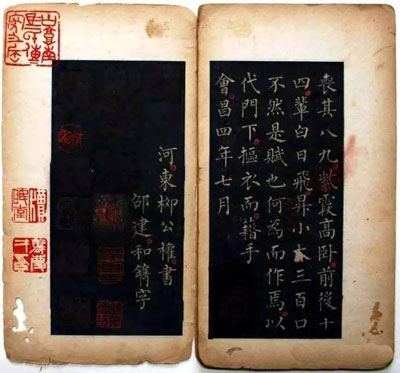 喪其八九紫霞高臥前從十
四輩白日飛昇小夲三百口
不然是賦也何為而作焉以
代門下摳衣而籍手
會昌四年七月
河東柳公權書
邵建和鐫字